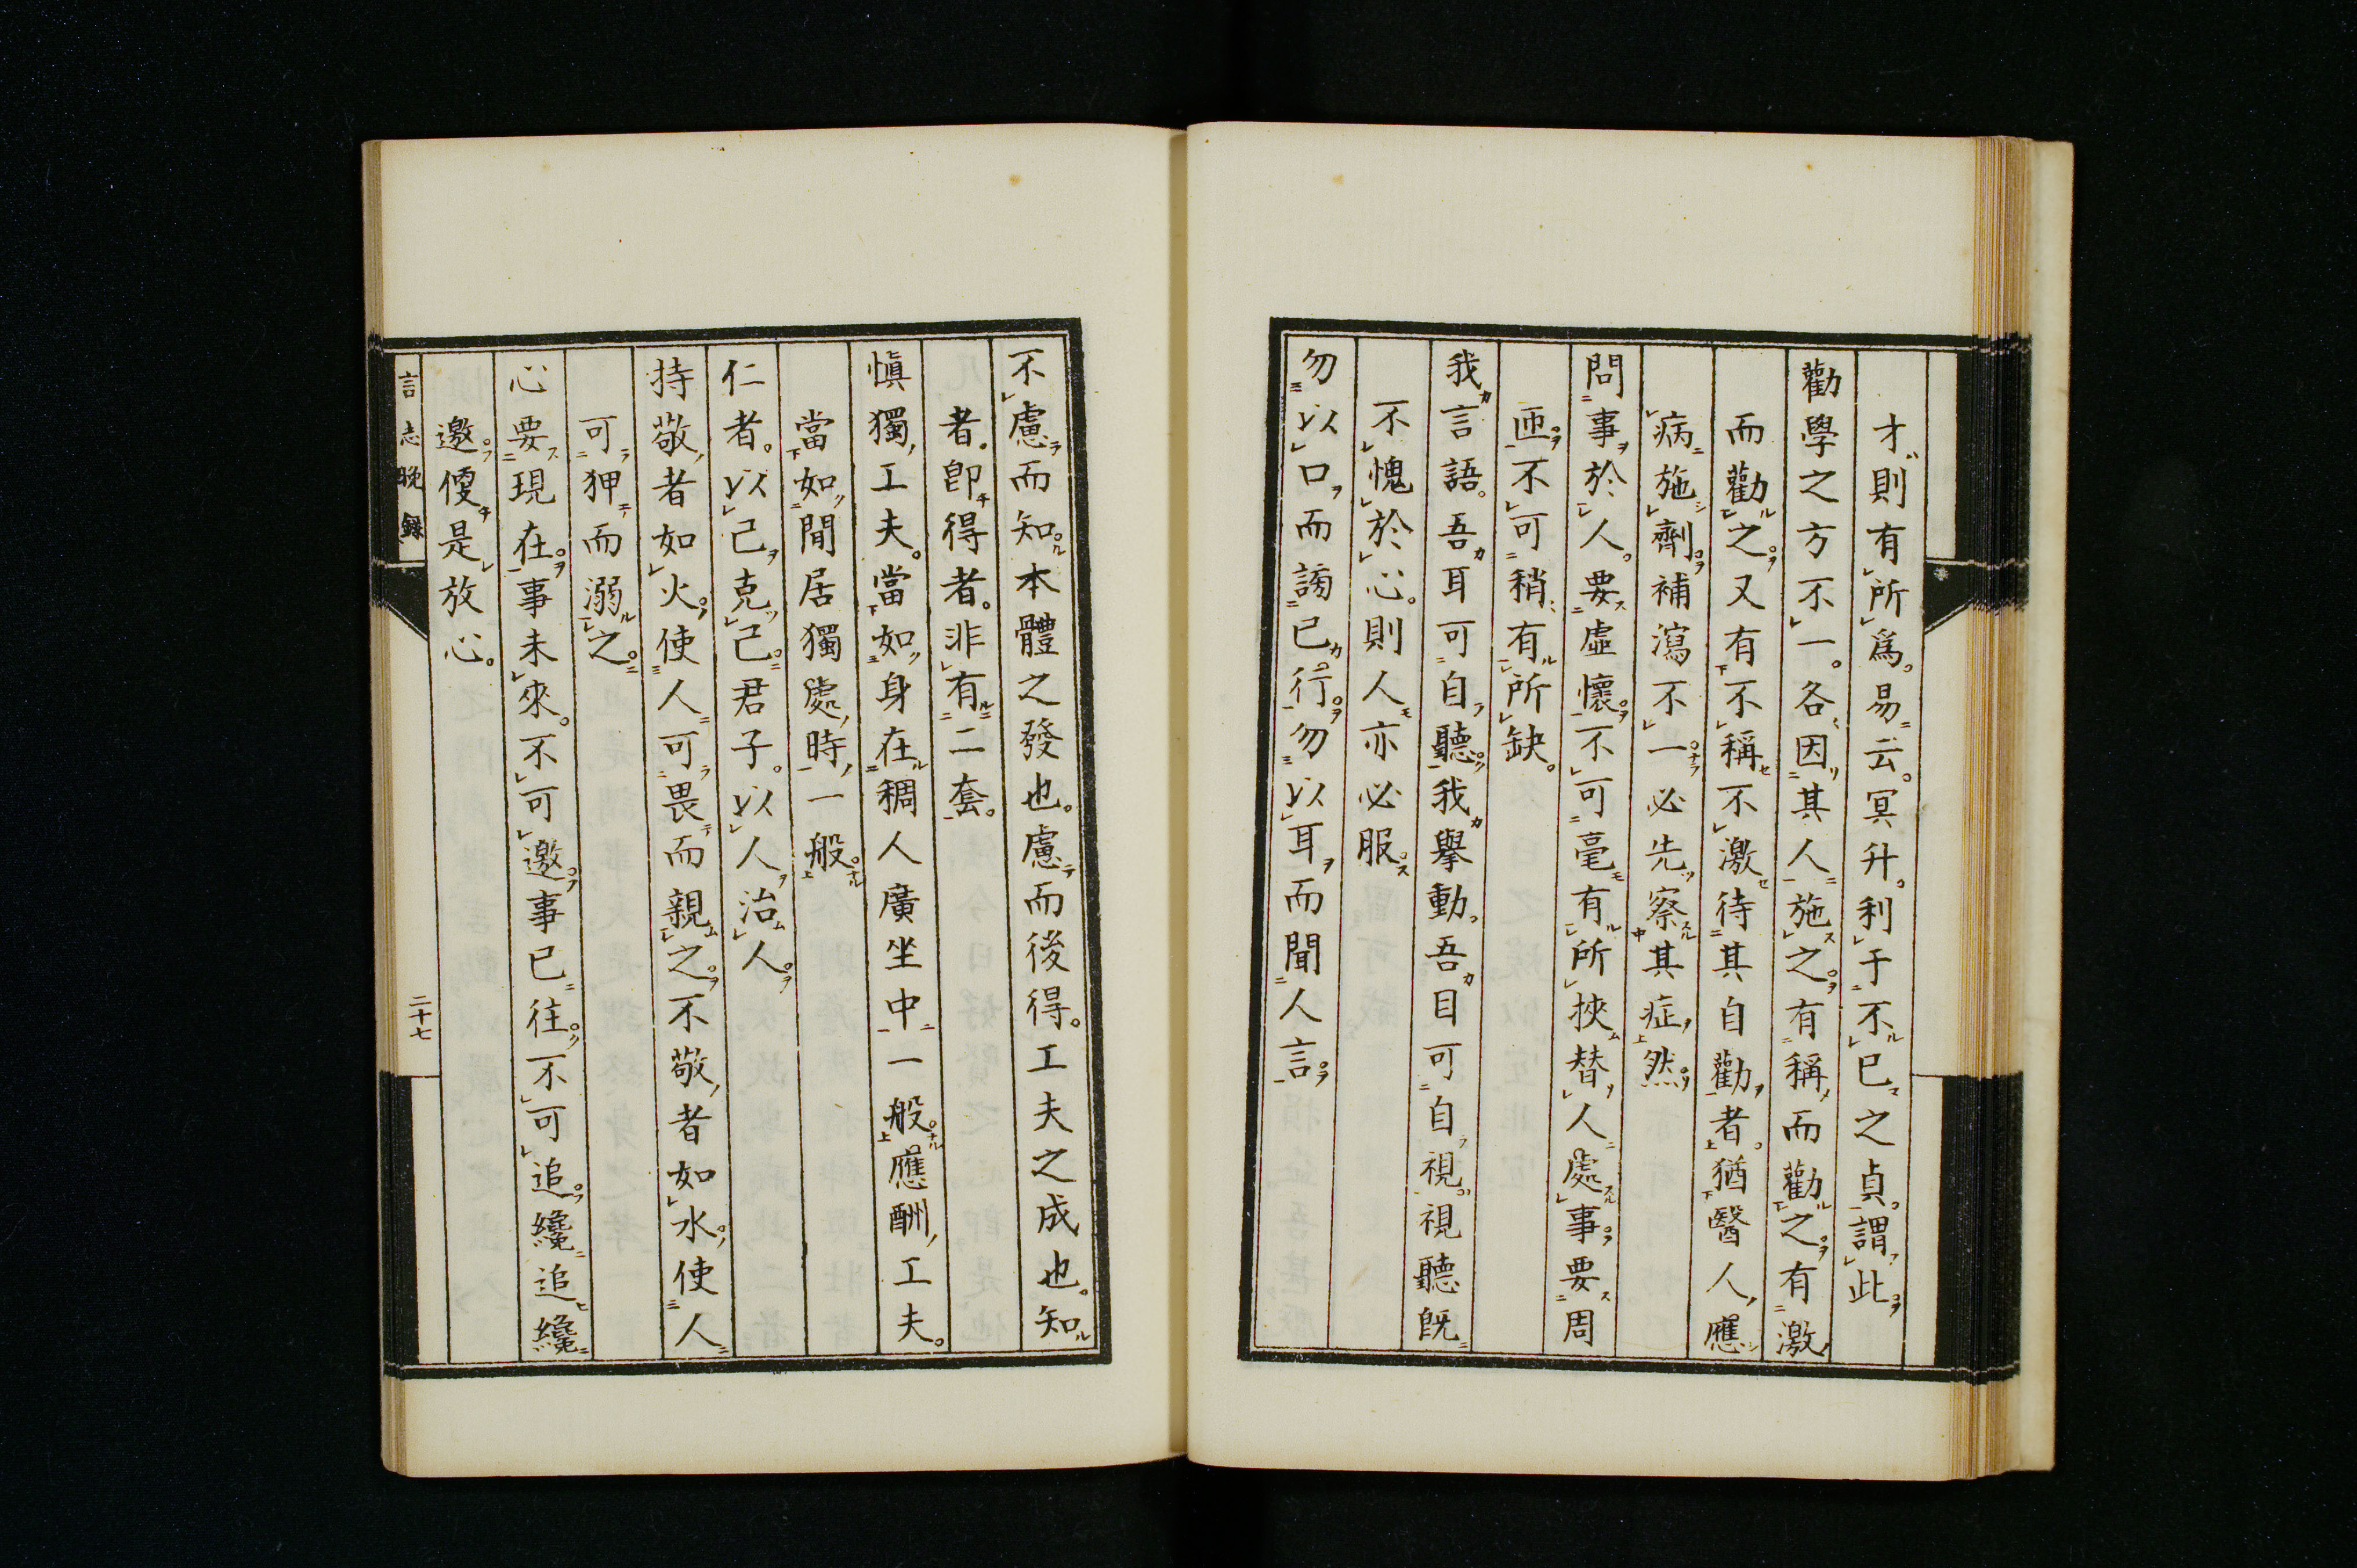 才則有所爲。易云。冥升。利于不已之貞。謂此
勸學之方不一。各因其人施之。有稱而勸之。有激
而勸之。又有不稱不激待其自勸者。猶醫人應
病施劑。補瀉不一。必先察其症然。
問事於人。要虛懷。不可毫有所挾。替人處事。要周
匝。不可稍有所缺。
我言語。吾耳可自聽。我擧動。吾目可自視。視聽旣
不愧於心。則人亦必服。
勿以口而謗己行。勿以耳而聞人言。
不慮而知。本體之發也。慮而後得。工夫之成也。知
者。卽得者。非有二套。
愼獨工夫。當如身在稠人廣坐中一般。應酬工夫。
當如閒居獨處時一般。
仁者。以己克己。君子。以人治人。
持敬者如火。使人可畏而親之。不敬者如水。使人
可狎而溺之。
心要現在。事未來。不可邀。事已往。不可追。纔追纔
邀。便是放心。
言志晚錄
二十七